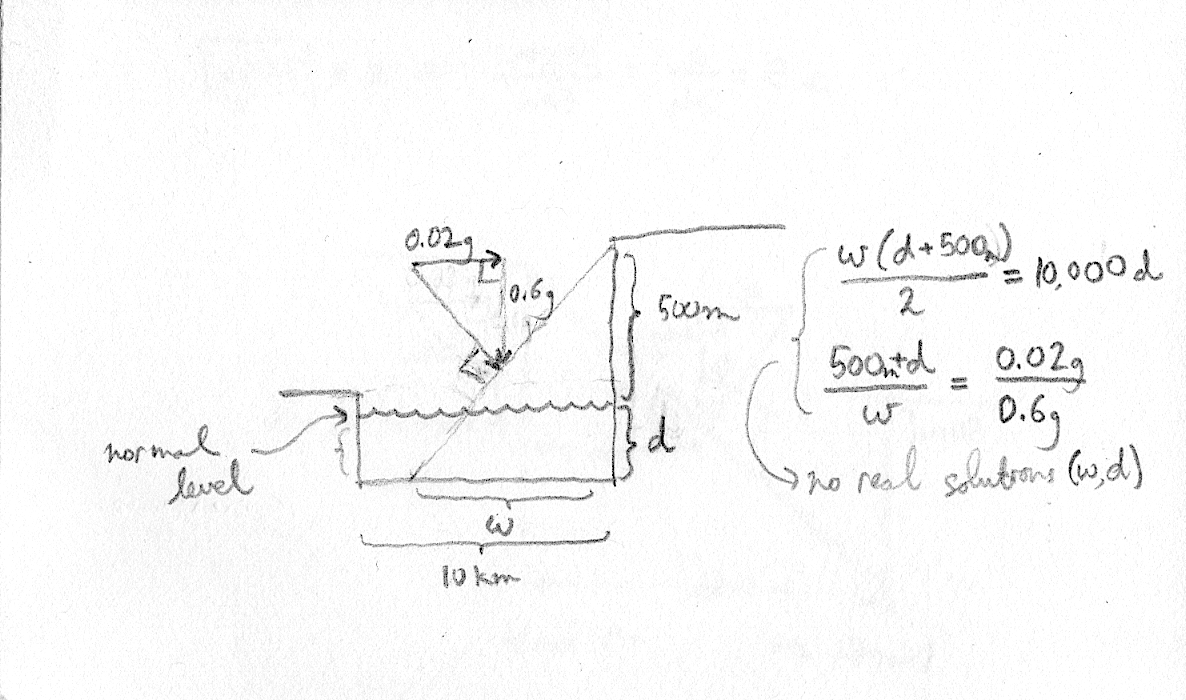 0.02g
0.6g
500m
normal
level
d
w
10 km
w(d+500m)
2
= 10,000d
500m+d
w
=
0.02g
0.6g
no real solutions (w,d)